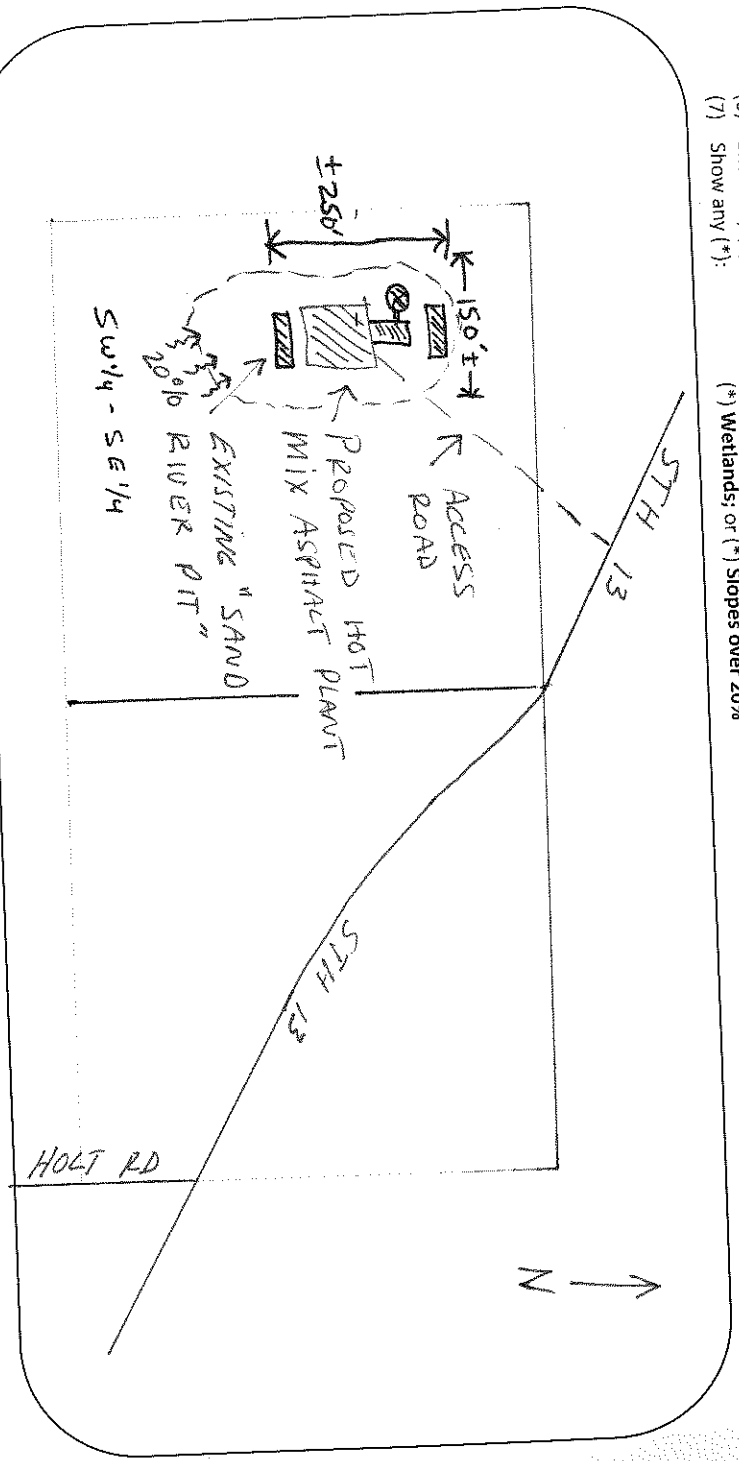 (7) Show any (*):
(*) Wetlands; or (*) Slopes over 20%
STH 13
150'±
±250'
ACCESS
ROAD
PROPOSED HOT
MIX ASPHALT PLANT
EXISTING "SAND
RIVER PIT"
20%
SW1/4 - SE1/4
STH 13
HOLT RD
N